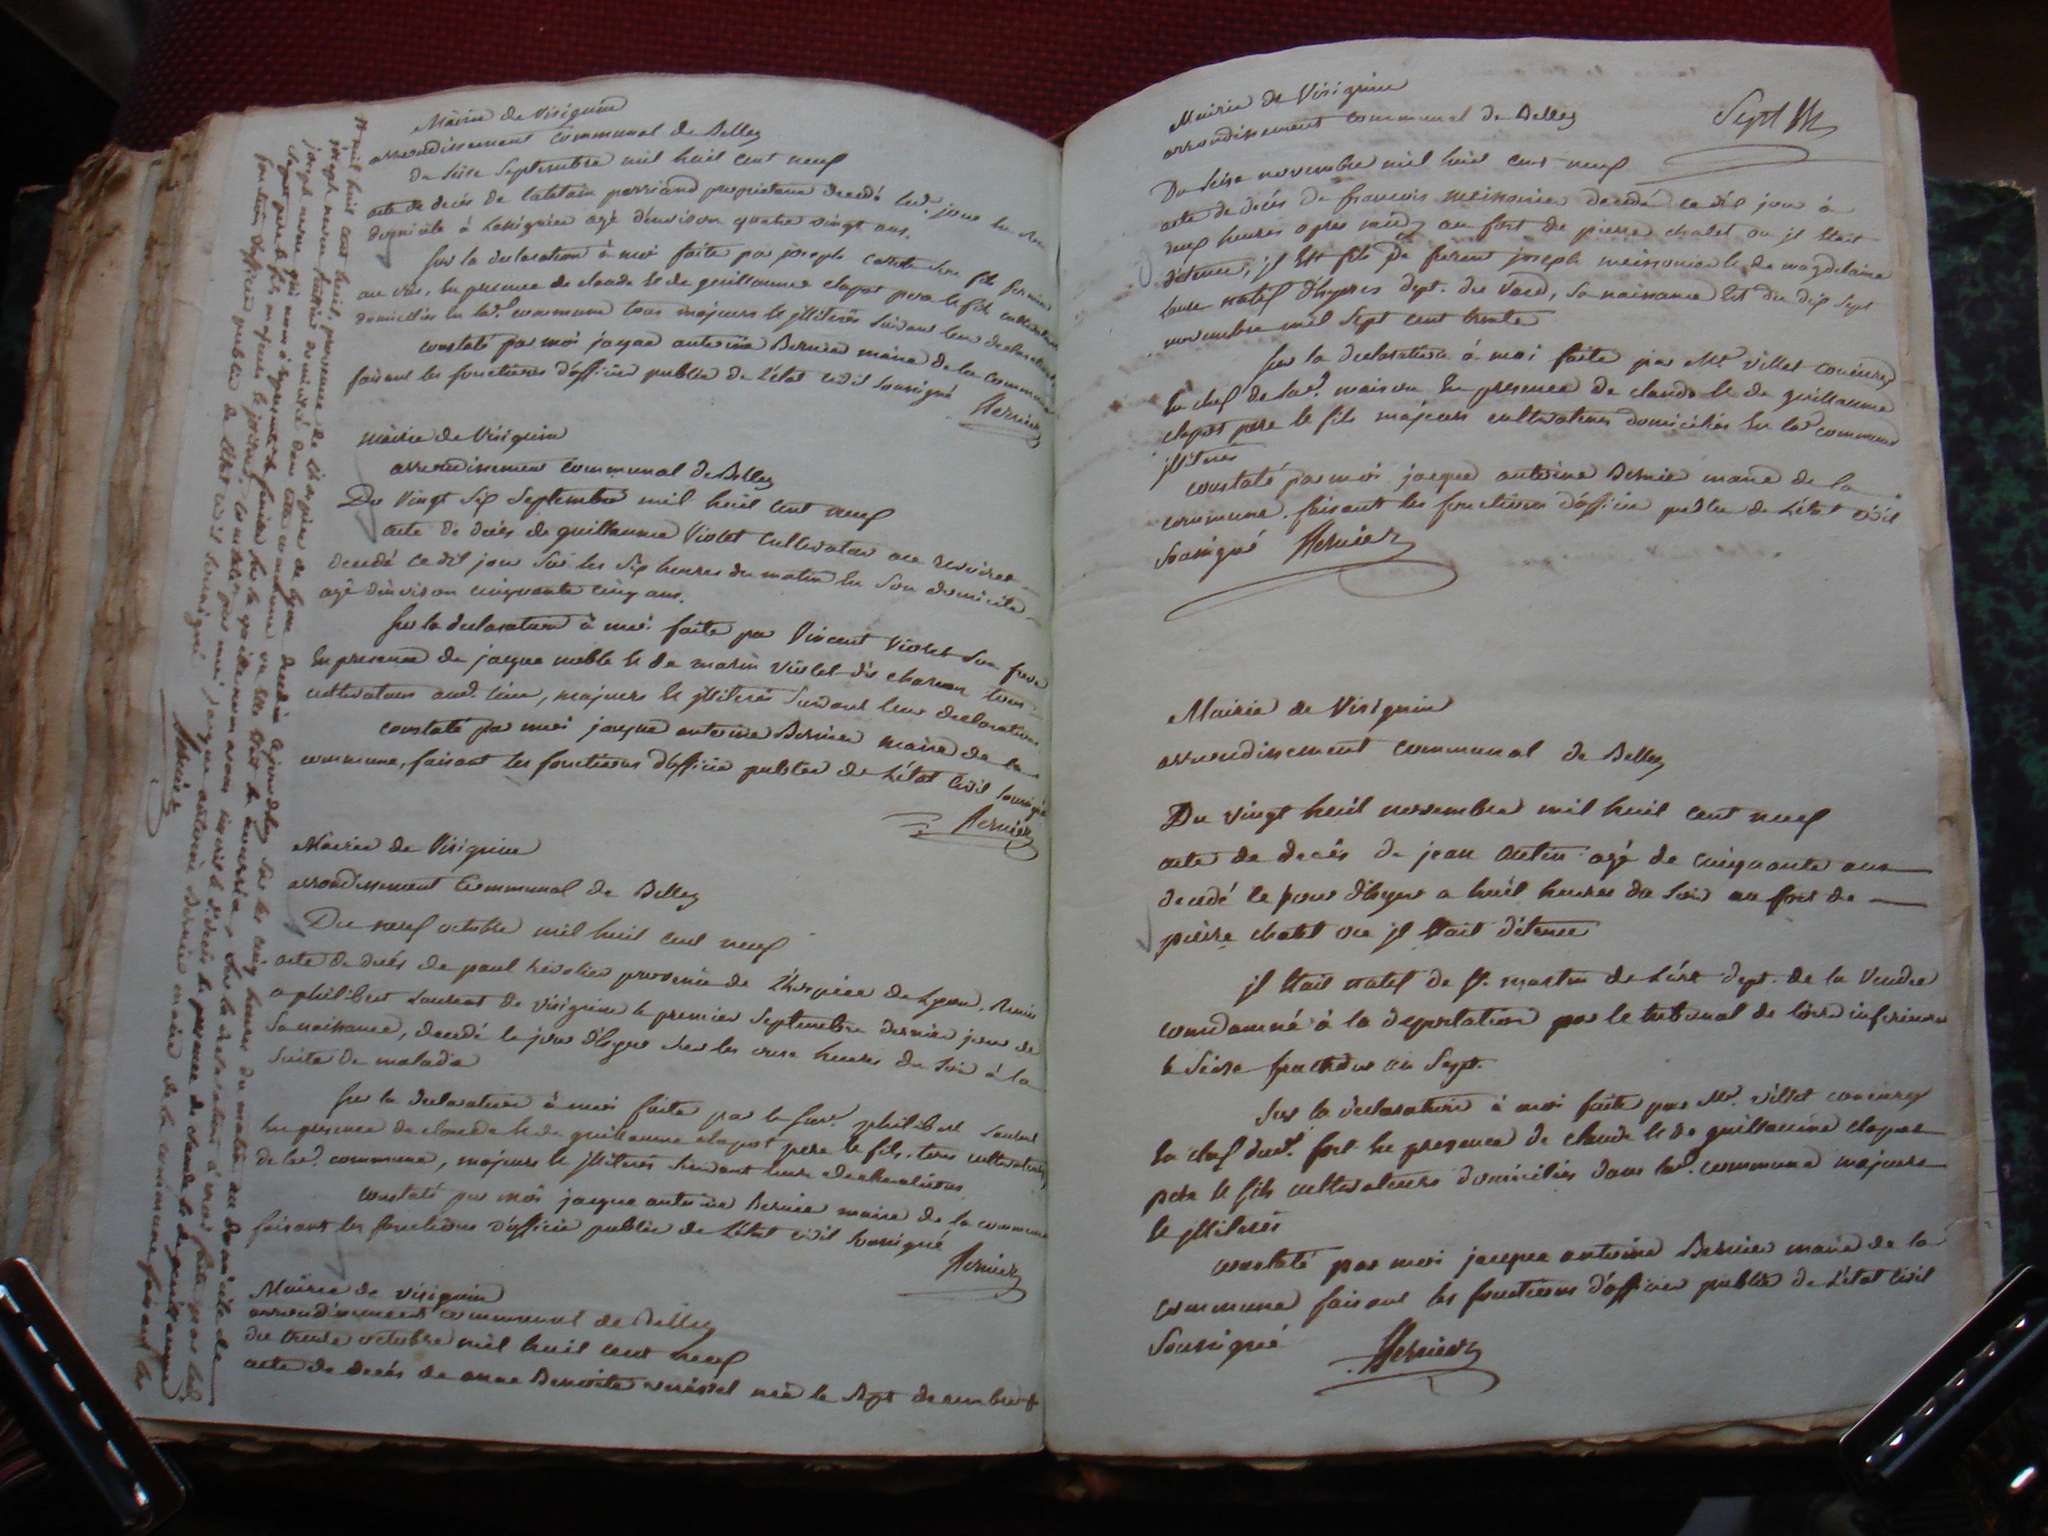 Mairie de Virignin
arrondissement communal de Belley
du seize Septembre mil huit cent neuf
acte de décés de perriand propriétaire decedé led. jour
domicilié à agé d'environ quatre vingt ans.
Sur la declaration à moi faite par joseph son fils
en presence de claude et de guillaume clapot pere et fils
domiciliés en lad. commune tous majeurs et illiterés suivant leur declaration
constaté par moi jacque antoine Bernier maire de la commune
faisant les fonctions d'officier public de l'état civil soussigné
Bernier
Mairie de Virignin
arrondissement communal de Belley
Du vingt six Septembre mil huit cent neuf
acte de décés de guillaume Violet cultivateur
decedé ce dit jour sur les six heures du matin en son domicile
agé d'environ cinquante cinq ans.
Sur la declaration à moi faite par Vincent Violet son frere
en presence de jacque noble et de marin violet dit charson tous
cultivateurs aud. lieu, majeurs et illiterés suivant leur declaration
constaté par moi jacque antoine Bernier maire de la
commune, faisant les fonctions d'officier public de l'état civil soussigné
Bernier
Mairie de Virignin
arrondissement Communal de Belley
Du neuf octobre mil huit cent neuf
acte de décés de paul provenu de l'hospice de Lyon, remis
a philibert Laurent de virignin le premier Septembre dernier jour de
sa naissance, decedé le jour d'hyer sur les onze heures du soir à la
suite de maladie
Sur la declaration à moi faite par le philibert Laurent
en presence de claude et de guillaume clapot pere et fils, tous cultivateurs
de lad. commune, majeurs et illiterés suivant leurs declarations
constaté par moi jacque antoine Bernier maire de la commune
faisant les fonctions d'officier public de l'état civil soussigné
Bernier
Mairie de virignin
arrondissement communal de Belley
du trente octobre mil huit cent neuf
acte de décés de anne Benoite née le sept decembre +
+ mil huit cent huit, provenue de l'hospice de Lyon decedée aujourdhuy sur les cinq heures du matin au domicile de
joseph domicilié dans cette commune ou elle étoit en nourrice, sur la declaration à moi faite par led.
joseph en presence de claude et de guillaume
clapot pere et fils majeurs constaté par moi jacque antoine Bernier maire de la commune faisant les
fonctions d'officier public de l'état civil soussigné
Bernier
Sept
Mairie de Virignin
arrondissement communal de Belley
Du seize novembre mil huit cent neuf
acte de décés de françois meissonier decedé ce dit jour à
neuf heures apres midy au fort de pierre chatel ou il étoit
détenu, il est fils de joseph meissonier et de magdelaine
natif d'hyeres dept. du Var, sa naissance est du dix sept
novembre mil sept cent trente
Sur la declaration à moi faite par Mr. Villet
en chef de lad. maison en presence de claude et de guillaume
clapot pere et fils majeurs cultivateurs domiciliés en lad. commune
illiterés
constaté par moi jacque antoine Bernier maire de la
commune, faisant les fonctions d'officier public de l'état civil
soussigné Bernier
Mairie de Virignin
arrondissement communal de Belley
Du vingt huit novembre mil huit cent neuf
acte de décés de jean agé de cinquante ans
decedé le jour d'hyer a huit heures du soir au fort de
pierre chatel ou il étoit détenu
il étoit natif de St. martin de dept. de la Vendée
condamné à la deportation par le tribunal de loire inferieure
le seize fructidor an sept.
Sur la declaration à moi faite par Mr. Villet
en chef dud. fort en presence de claude et de guillaume clapot
pere et fils cultivateurs domiciliés dans lad. commune majeurs
et illiterés
constaté par moi jacque antoine Bernier maire de la
commune faisant les fonctions d'officier public de l'état civil
soussigné Bernier